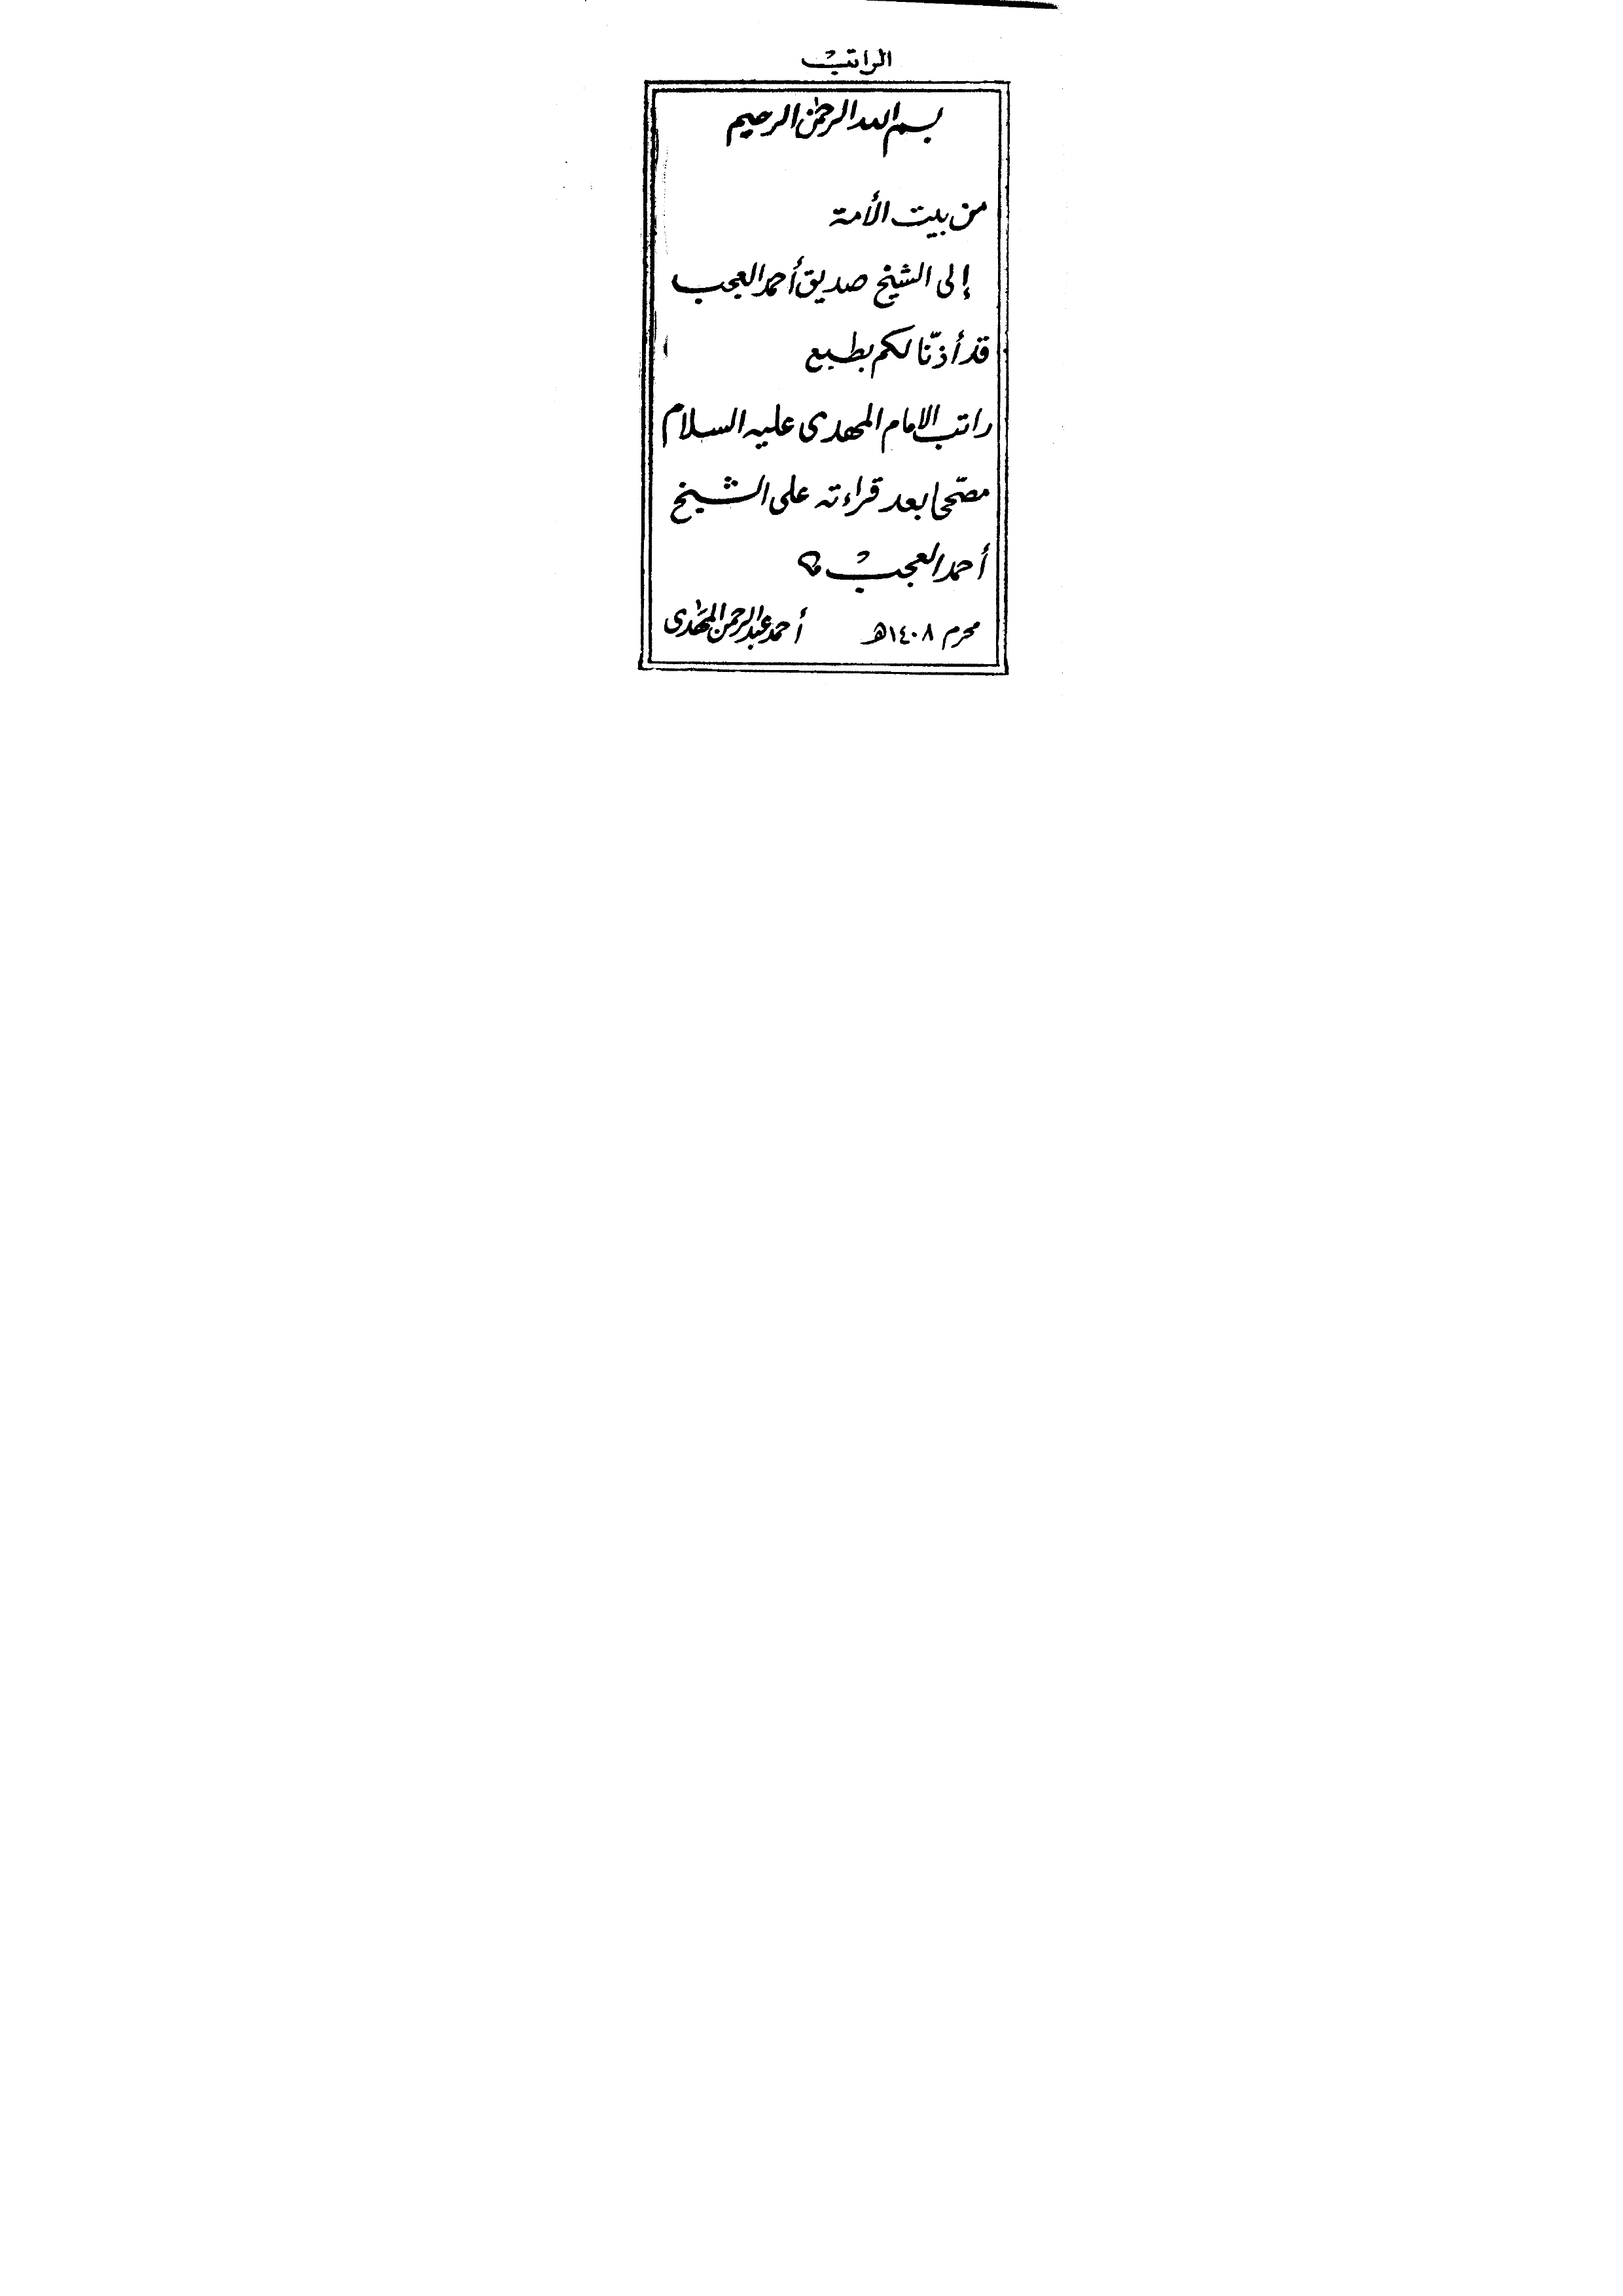 الراتب
بسم الله الرحمن الرحيم
من بيت الأمة
إلى الشيخ صديق أحمد العجب
قد أذنّا لكم بطبع
راتب الامام المهدى عليه السلام
مصّحا بعد قراءته على الشيخ
أحمد العجب
محرم ١٤٠٨هـ أحمد عبد الرحمن المهدى